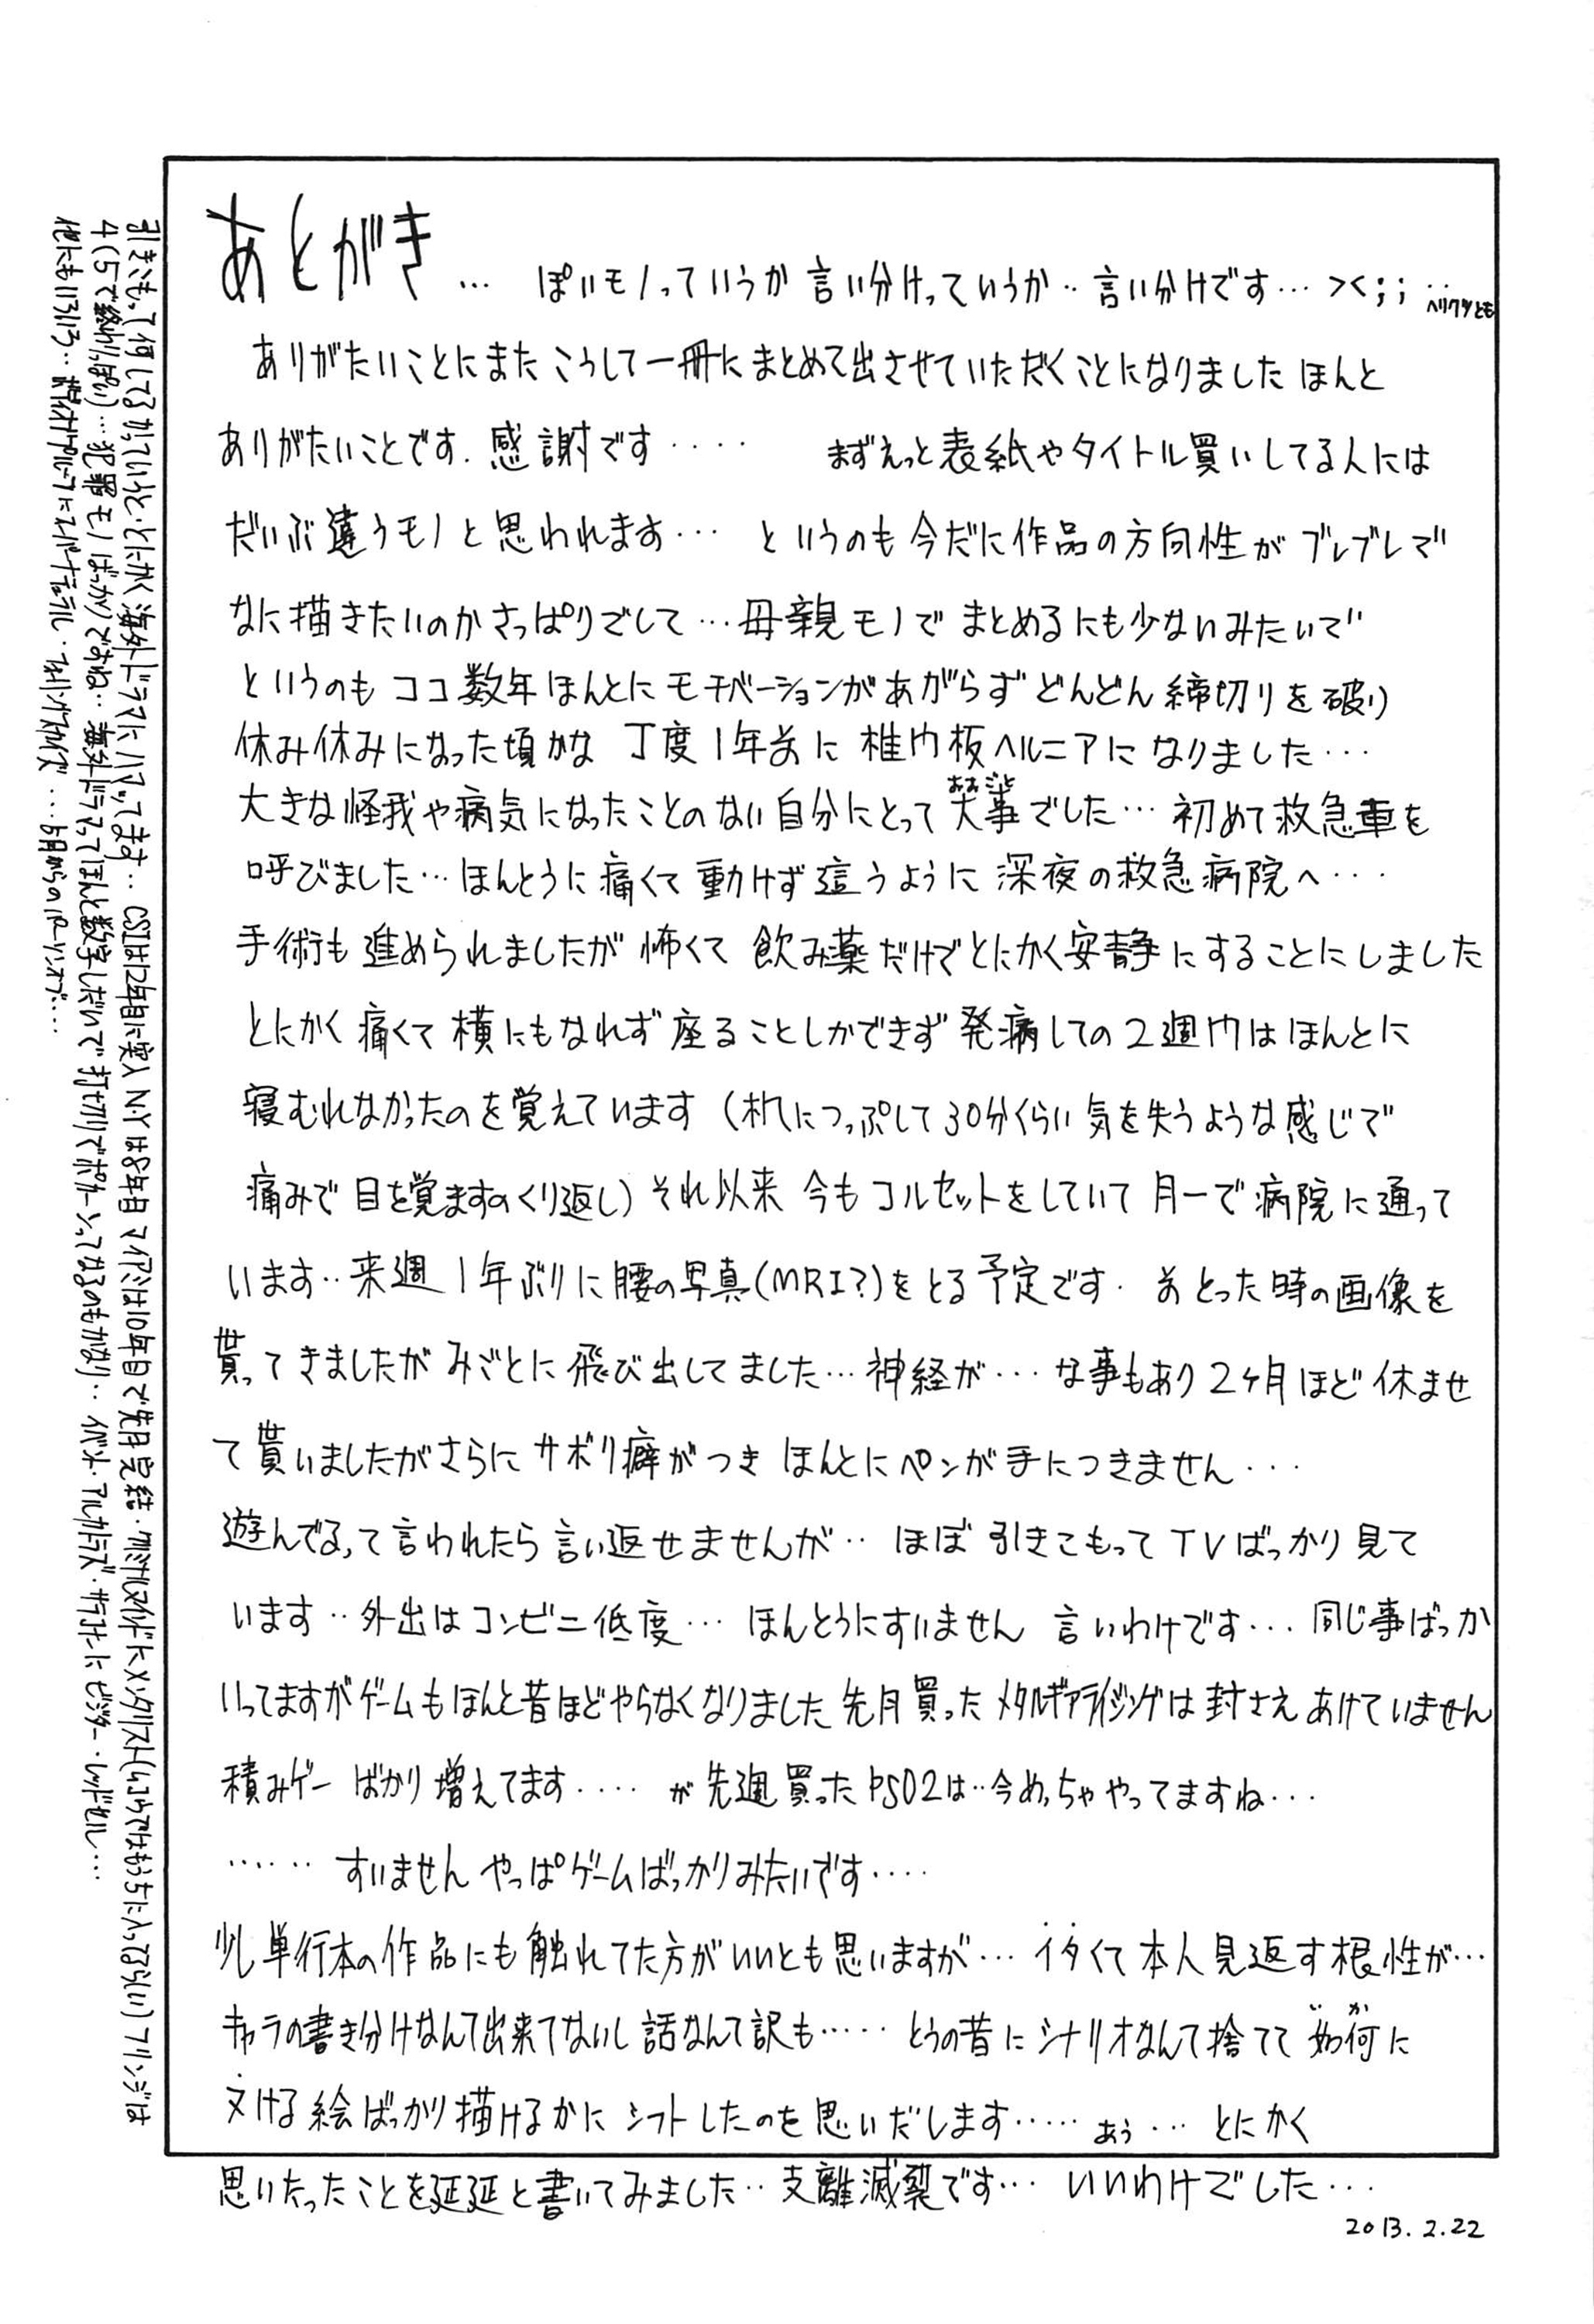 あとがき… ぽいモノっていうか 言い分けっていうか‥ 言い分けです… ><;; ‥ヘリクツとも
ありがたいことにまた こうして一冊に まとめて出させていただくことになりました ほんと
ありがたいことです. 感謝です ‥‥ まずえっと 表紙やタイトル買いしてる人には
だいぶ違うモノと思われます… というのも今だに作品の方向性が ブレブレで
なに描きたいのか さっぱりでして …母親モノで まとめるにも少ないみたいで
というのも ココ数年 ほんとに モチベーションがあがらず どんどん 締切りを破り
休み休みになった頃かな 丁度1年前に 椎間板ヘルニアに なりました…
大きな怪我や病気になったことのない自分にとって大事でした… 初めて救急車を
おおごと
呼びました… ほんとうに痛くて 動けず 這うように 深夜の救急病院へ…
手術も進められましたが 怖くて 飲み薬だけでとにかく安静にすることにしました
とにかく痛くて 横にもなれず 座ることしかできず 発病しての2週間はほんとに
寝むれなかったのを覚えています (机につっぷして30分くらい気を失うような感じで
痛みで目を覚ますのくり返し) それ以来 今もコルセットをしていて 月一で病院に通って
います‥来週 1年ぶりに腰の写真(MRI?)をとる予定です. 前とった時の画像を
貰ってきましたが みごとに飛び出してました…神経が… な事もあり 2ヶ月ほど休ませ
て貰いましたがさらに サボり癖がつき ほんとにペンが手につきません…
遊んでるって言われたら言い返せませんが‥ ほぼ引きこもって TVばっかり見て
います‥外出はコンビニ低度… ほんとうにすいません 言いわけです… 同じ事ばっか
いってますがゲームもほんと昔ほどやらなくなりました 先月買ったメタルギアライジングは封さえあけていません
積みゲー ばかり増えてます‥‥ が 先週買ったPSO2は‥今めっちゃやってますね…
‥‥‥ すいません やっぱゲームばっかりみたいです‥‥
少し単行本の作品にも触れてた方がいいとも思いますが… イタくて本人見返す根性が…
キャラの書き分けなんて出来てないし 話なんて訳も…‥ とうの昔にシナリオなんて捨てて 如何に
いか
ヌける絵ばっかり描けるかに シフトしたのを思いだします…‥ あぅ… とにかく
思いたったことを延延と書いてみました‥ 支離滅裂です… いいわけでした…
2013.2.22
引きこもって何してるかっていうと・とにかく海外ドラマにハマってます‥ CSIは12年目に突入 N.Yは8年目 マイアミは10年目で先月完結・クリミナルマインドにメンタリスト(ムコウではもう5に入ってるらしい) フリンジは
4(5で終わりっぽい)…犯罪モノばっかりですね‥ 海外ドラマってほんと数字しだいで打セ切りでポカーンってなるのもかなり‥ イベント・アルカトラズ・サラコナーに ビジター・レッドセル…
他にもいろいろ‥